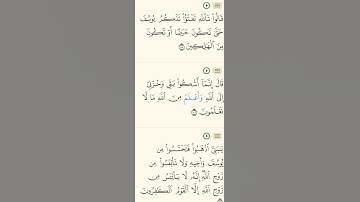 قَالُوا۟ تَٱللَّهِ تَفْتَؤُا۟ تَذْكُرُ يُوسُفَ
حَتَّىٰ تَكُونَ حَرَضًا أَوْ تَكُونَ
مِنَ ٱلْهَـٰلِكِينَ
قَالَ إِنَّمَآ أَشْكُوا۟ بَثِّى وَحُزْنِىٓ
إِلَى ٱللَّهِ وَأَعْلَمُ مِنَ ٱللَّهِ مَا لَا
تَعْلَمُونَ
يَـٰبَنِىَّ ٱذْهَبُوا۟ فَتَحَسَّسُوا۟ مِن
يُوسُفَ وَأَخِيهِ وَلَا تَا۟يْـَٔسُوا۟ مِن
رَّوْحِ ٱللَّهِ إِنَّهُۥ لَا يَا۟يْـَٔسُ مِن
رَّوْحِ ٱللَّهِ إِلَّا ٱلْقَوْمُ ٱلْكَـٰفِرُونَ